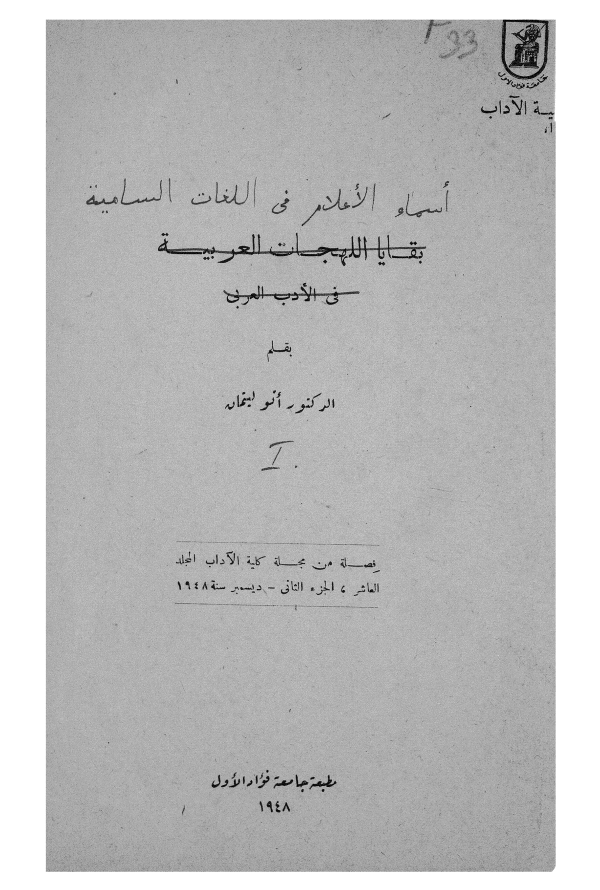 F 93
جامعة فؤاد الأول
ية الآداب
أسماء الأعلام في اللغات السامية
بقـايا اللهجـات العربيـــة
فى الأدب العربى
بقـلم
الدكتور أنو ليتمان
I.
فصــلة من مجــلة كلية الآداب المجلد
العاشر ، الجزء الثانى – ديسمبر سنة ١٩٤٨
مطبعة جامعة فؤاد الأول
١٩٤٨